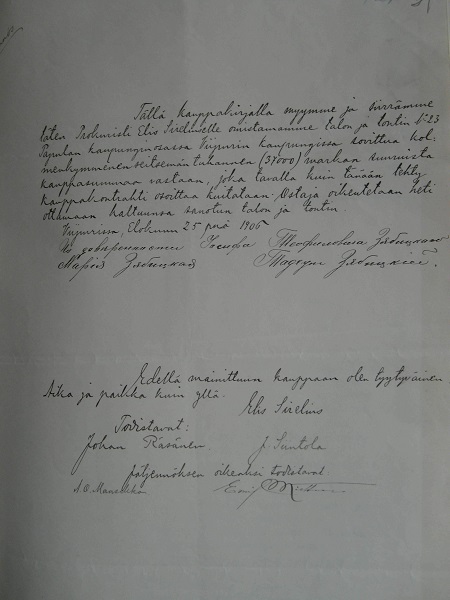 Tällä kauppakirjalla myymme ja siirrämme
täten Prokuristi Elis Sireliukselle omistamamme talon ja tontin No 23
Papulan kaupunginosassa Viipurin kaupungissa sovittua kol-
menkymmenenseitsemän tuhannen (37000) markan suuruista
kauppasummaa vastaan, joka tavalla kuin tänään tehty
kauppakontrahti osoittaa kuitataan. Ostaja oikeutetaan heti
ottamaan haltuunsa sanotun talon ja tontin.
Viipurissa, Elokuun 25 pnä 1906
По довѣренности Іосифа Теофиловича Зябицкаго
Марія Зябицкая Тадеуш Зябицкій.
Edellä mainittuun kauppaan olen tyytyväinen
Aika ja paikka kuin yllä.
Elis Sirelius
Todistavat:
Johan Räsänen J. Suntola
Jäljennöksen oikeaksi todistavat: